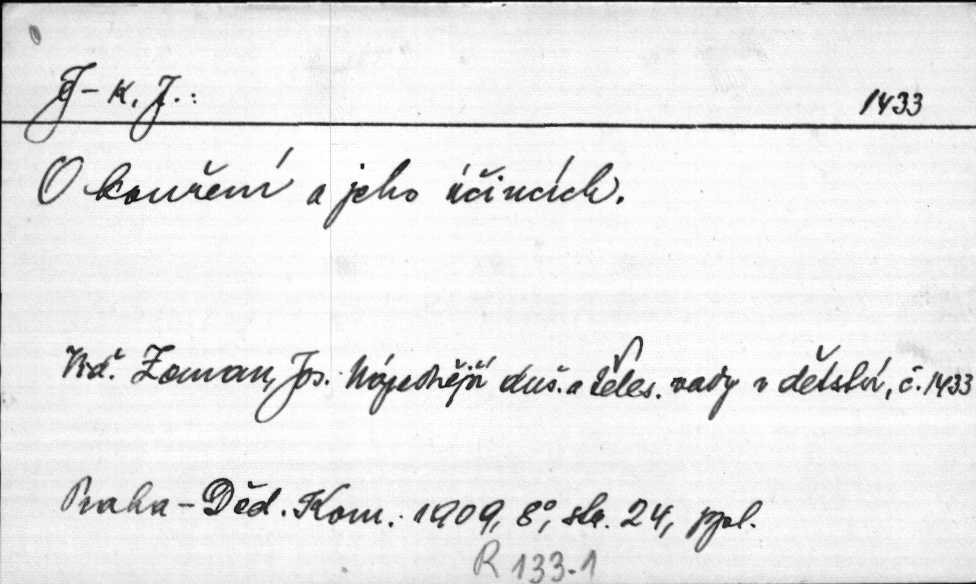 J-k, J.: 1433
O kouření a jeho účincích.
Viz. Zeman, Jos. Nápadnější duš. a těles. vady v dětství, č. 1433
Praha – Děd. Kom. 1909, 8°, str. 24, ppl.
R 133-1